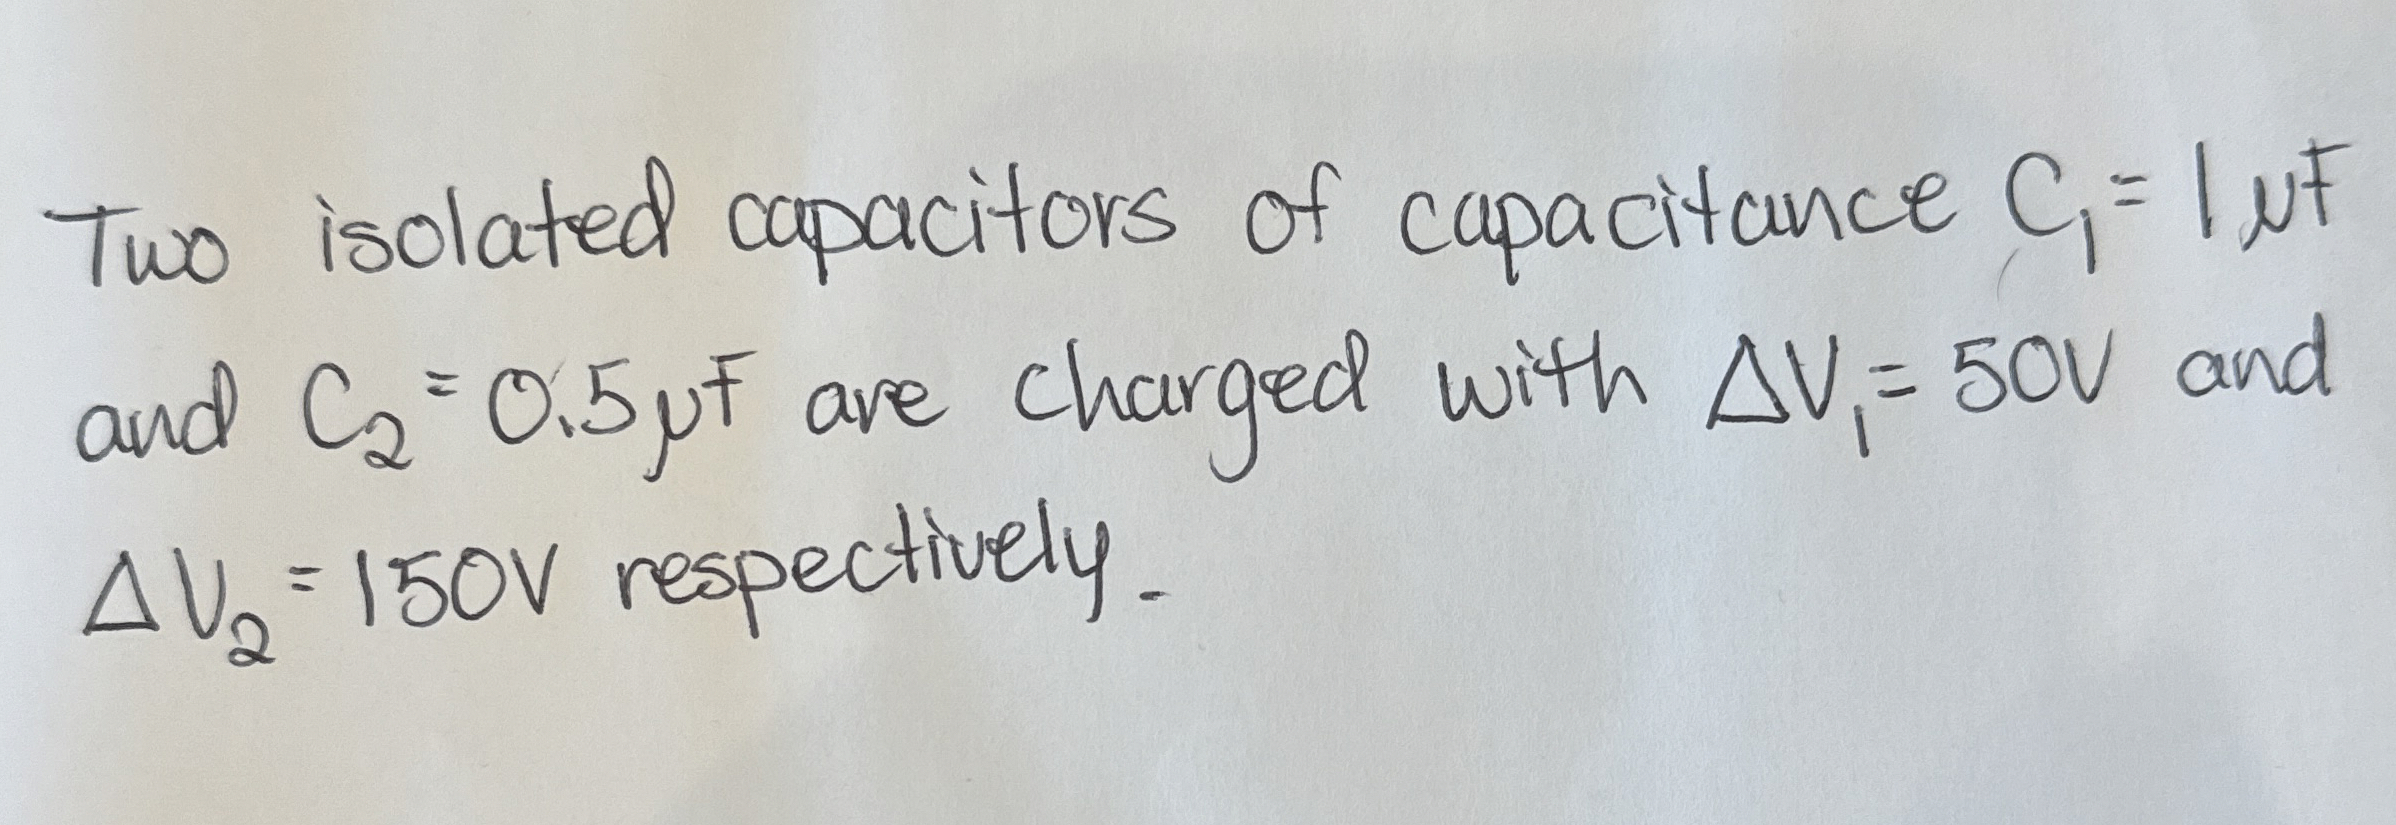 Two isolated capacitors of capacitance C₁ = 1 μF
and C₂ = 0.5 μF are charged with ΔV₁ = 50V and
ΔV₂ = 150V respectively.